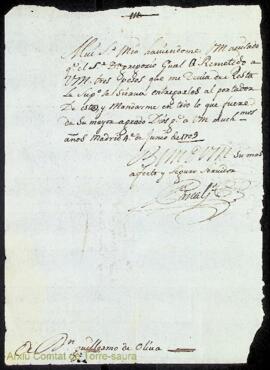 Mui Sr. Mio haviendome Vm avisado
qe el Sr. Dn Gregorio Gual A Remetido a
Vm. tres que me devia de
le Supco. se sirva entregarlos al portador
de esta y Mandarme en todo lo que fuere
de su mayor agrado Dios gde a Vm muchos
años Madrid 4 de Junio de 1709
BLM de Vm su mas
afecto y seguro servidor
Dn Guillermo de Oliva
Arxiu Comtat de Torre-saura